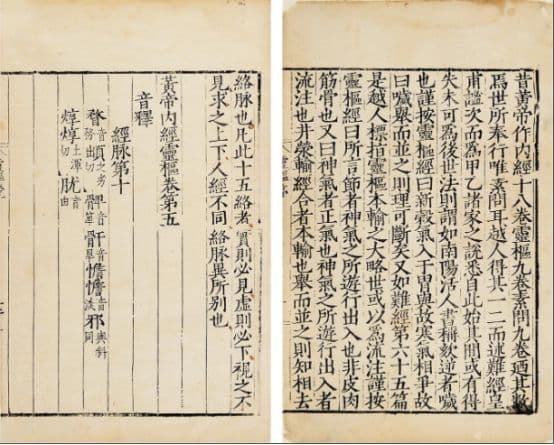 昔黃帝作內經十八卷靈樞九卷素問九卷迺其數
焉世所奉行唯素問耳越人得其一二而述難經皇
甫謐次而爲甲乙諸家之說悉自此始其間或有得
失未可爲後世法則謂如南陽活人書稱欬逆者噦
也謹按靈樞經曰新穀氣入于胃與故寒氣相爭故
曰噦舉而並之則理可斷矣又如難經第六十五篇
是越人標指靈樞本輸之大略世或以爲流注謹按
靈樞經曰所言節者神氣之所遊行出入也非皮肉
筋骨也又曰神氣者正氣也神氣之所遊行出入者
流注也井滎輸經合者本輸也舉而並之則知相去
絡脉也凡此十五絡者實則必見虛則必下視之不
見求之上下人經不同絡脉異所別也
黃帝內經靈樞卷第五
音釋
經脉第十
音務 憺憺音淡邪音與斜同
焞焞土渾切 音由